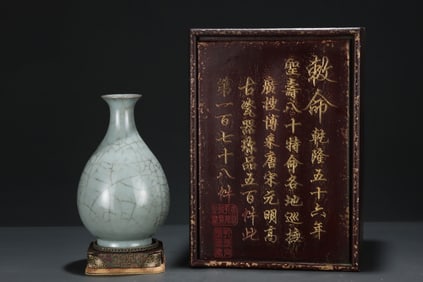 敕命 乾隆五十六年
聖壽八十特命各地巡撫
廣搜博采唐宋元明高
古瓷器臻品五百件此
第一百七十八件